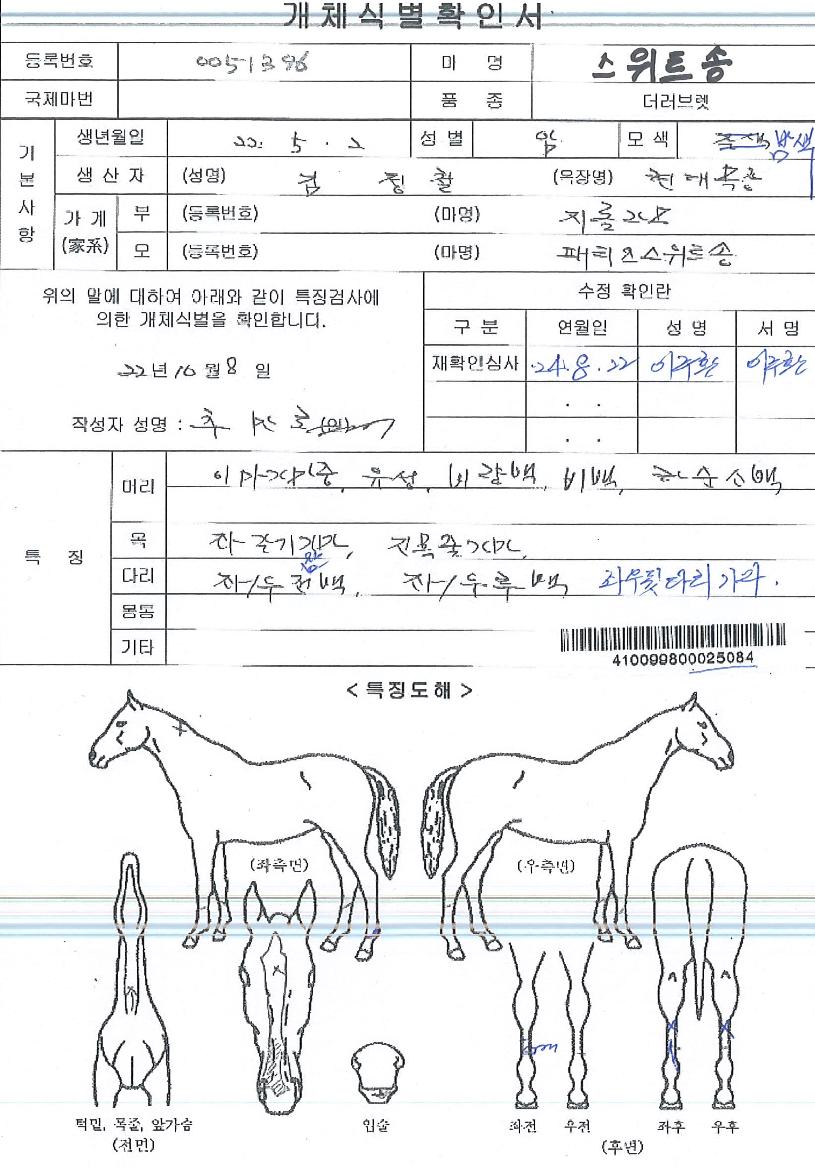 개체식별확인서
등록번호 0051396 마 명 스위트송
국제마번 품 종 더러브렛
기본사항
생년월일 22. 5 . 2 성 별 암 모 색 밤색
생 산 자 (성명) 김 정 철 (목장명) 현대목장
가 계 (家系) 부 (등록번호) (마명) 지롤라모
모 (등록번호) (마명) 패티즈스위트송
위의 말에 대하여 아래와 같이 특징검사에
의한 개체식별을 확인합니다.
22년 10 월 8 일
작성자 성명 :
수정 확인란
구 분 연월일 성 명 서 명
재확인심사 ·24.8.22 이주환 이주환
. .
. .
특 징
머리 이마가마중, 유성, 비량백, 비백,
목
다리 좌우뒷다리가마.
몸통
기타
410099800025084
< 특징도해 >
(좌측면) (우측면)
턱밑, 목줄, 앞가슴
(전면)
입술
좌전 우전 좌후 우후
(후면)